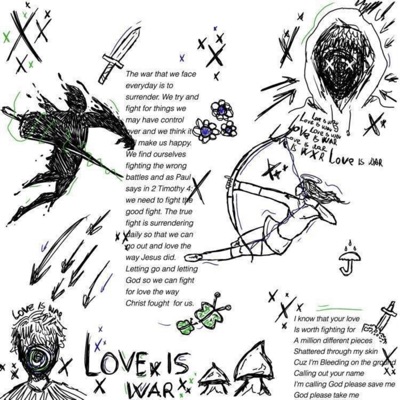 The war that we face
everyday is to
surrender. We try and
fight for things we
may have control
over and we think it
will make us happy.
We find ourselves
fighting the wrong
battles and as Paul
says in 2 Timothy 4:
we need to fight the
good fight. The true
fight is surrendering
daily so that we can
go out and love the
way Jesus did.
Letting go and letting
God so we can fight
for love the way
Christ fought for us.
LOVE IS WAR
LOVE IS WAR
LOVE IS WAR
LOVE IS WAR
LOVE IS WAR
IS WAR LOVE IS WAR
LOVE IS WAR
LOVE IS
WAR
I know that your love
Is worth fighting for
A million different pieces
Shattered through my skin
Cuz I'm Bleeding on the ground
Calling out your name
I'm calling God please save me
God please take me